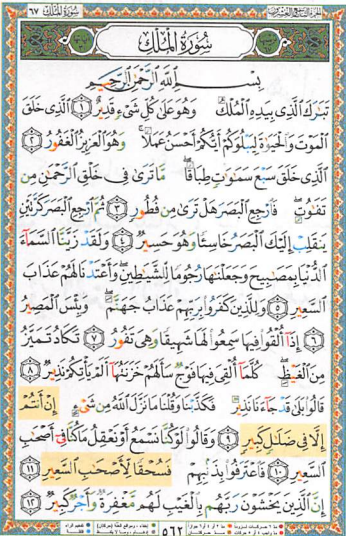 سُورَةُ المُلْكِ ٦٧
سُورَةُ المُلْكِ
بِسْمِ ٱللَّهِ ٱلرَّحْمَٰنِ ٱلرَّحِيمِ
تَبَٰرَكَ ٱلَّذِى بِيَدِهِ ٱلْمُلْكُ وَهُوَ عَلَىٰ كُلِّ شَىْءٍ قَدِيرٌ ١ ٱلَّذِى خَلَقَ
ٱلْمَوْتَ وَٱلْحَيَوٰةَ لِيَبْلُوَكُمْ أَيُّكُمْ أَحْسَنُ عَمَلًا ۚ وَهُوَ ٱلْعَزِيزُ ٱلْغَفُورُ ٢
ٱلَّذِى خَلَقَ سَبْعَ سَمَٰوَٰتٍ طِبَاقًا ۖ مَّا تَرَىٰ فِى خَلْقِ ٱلرَّحْمَٰنِ مِن
تَفَٰوُتٍ ۖ فَٱرْجِعِ ٱلْبَصَرَ هَلْ تَرَىٰ مِن فُطُورٍ ٣ ثُمَّ ٱرْجِعِ ٱلْبَصَرَ كَرَّتَيْنِ
يَنقَلِبْ إِلَيْكَ ٱلْبَصَرُ خَاسِئًا وَهُوَ حَسِيرٌ ٤ وَلَقَدْ زَيَّنَّا ٱلسَّمَآءَ
ٱلدُّنْيَا بِمَصَٰبِيحَ وَجَعَلْنَٰهَا رُجُومًا لِّلشَّيَٰطِينِ ۖ وَأَعْتَدْنَا لَهُمْ عَذَابَ
ٱلسَّعِيرِ ٥ وَلِلَّذِينَ كَفَرُوا۟ بِرَبِّهِمْ عَذَابُ جَهَنَّمَ ۖ وَبِئْسَ ٱلْمَصِيرُ
٦ إِذَآ أُلْقُوا۟ فِيهَا سَمِعُوا۟ لَهَا شَهِيقًا وَهِىَ تَفُورُ ٧ تَكَادُ تَمَيَّزُ
مِنَ ٱلْغَيْظِ ۖ كُلَّمَآ أُلْقِىَ فِيهَا فَوْجٌ سَأَلَهُمْ خَزَنَتُهَآ أَلَمْ يَأْتِكُمْ نَذِيرٌ ٨
قَالُوا۟ بَلَىٰ قَدْ جَآءَنَا نَذِيرٌ فَكَذَّبْنَا وَقُلْنَا مَا نَزَّلَ ٱللَّهُ مِن شَىْءٍ إِنْ أَنتُمْ
إِلَّا فِى ضَلَٰلٍ كَبِيرٍ ٩ وَقَالُوا۟ لَوْ كُنَّا نَسْمَعُ أَوْ نَعْقِلُ مَا كُنَّا فِىٓ أَصْحَٰبِ
ٱلسَّعِيرِ ١٠ فَٱعْتَرَفُوا۟ بِذَنۢبِهِمْ فَسُحْقًا لِّأَصْحَٰبِ ٱلسَّعِيرِ ١١
إِنَّ ٱلَّذِينَ يَخْشَوْنَ رَبَّهُم بِٱلْغَيْبِ لَهُم مَّغْفِرَةٌ وَأَجْرٌ كَبِيرٌ ١٢
٥٦٢